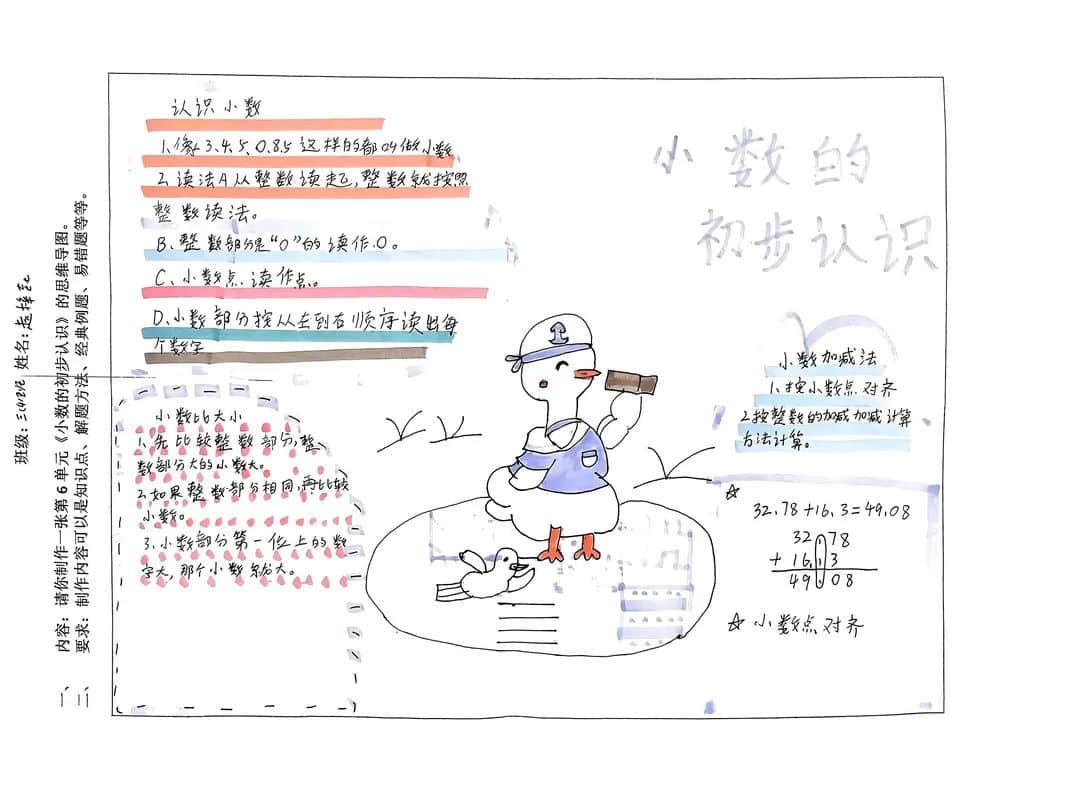 小数的
初步认识
认识小数
1.像3.4.5.0.85这样的都叫做小数
2.读法A从整数读起,整数就按照
整数读法。
B、整数部分是“0”的读作.0。
C、小数点.读作点。
D、小数部分按从左到右顺序读出每
个数字
小数比大小
1.先比较整数部分,整
数部分大的小数大。
2.如果整数部分相同,再比较
小数。
3.小数部分第一位上的数
字大,那个小数就大。
小数加减法
1.按小数点对齐
2.按整数的加减加减计算
方法计算。
☆
32.78+16.3=49.08
32.78
+ 16.3
49.08
☆小数点对齐
班级: 姓名:
一、内容:请你制作一张第6单元《小数的初步认识》的思维导图。
二、要求:制作内容可以是知识点、解题方法、经典例题、易错题等等。